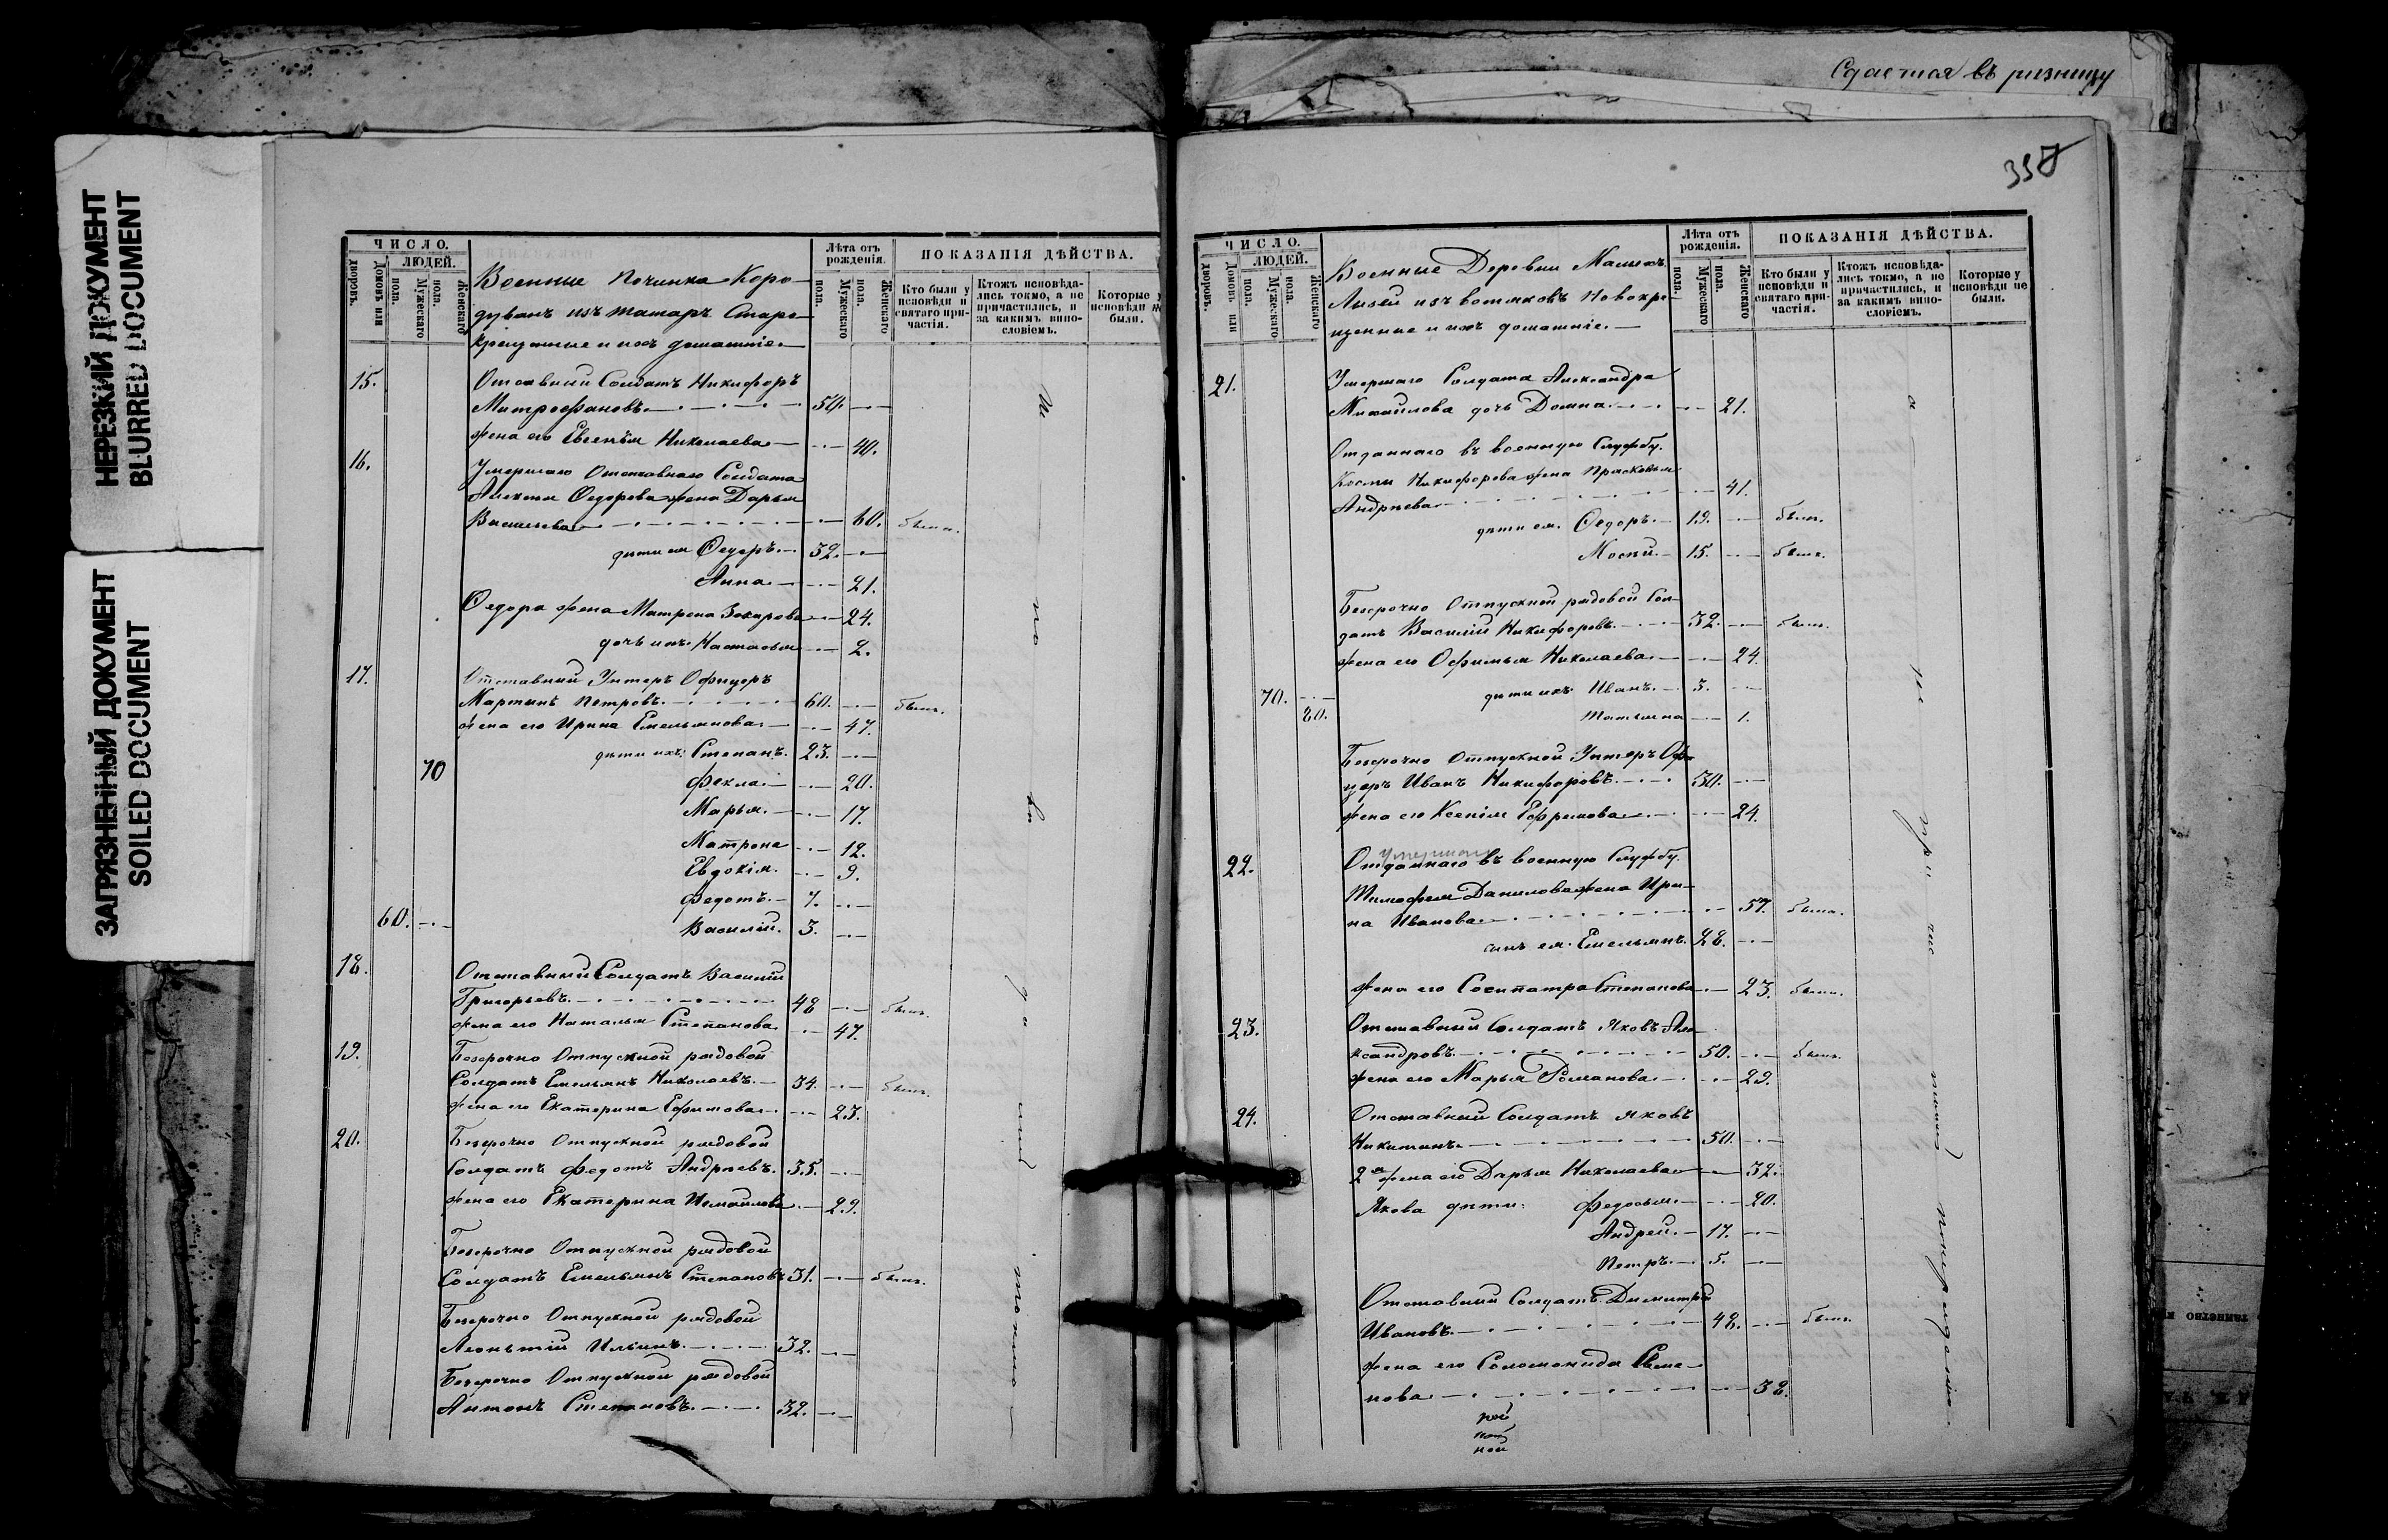 Сдается въ ризницу
НЕРЕЗКИЙ ДОКУМЕНТ
BLURRED DOCUMENT
ЗАГРЯЗНЕННЫЙ ДОКУМЕНТ
SOILED DOCUMENT
ЧИСЛО.
ЛЮДЕЙ.
дворовъ.
Домовъ или
Мужескаго пола.
Женскаго пола.
Лѣта отъ рожденія.
Мужескаго пола.
Женскаго пола.
ПОКАЗАНІЯ ДѢЙСТВА.
Кто были у исповѣди и святаго при-частія.
Ктожъ исповѣда-лись токмо, а не причастились, и за какимъ вино-словіемъ.
Которые у исповѣди не были.
Военные Починка Коро-
дуванъ изъ татаръ Старо-
крещенные и ихъ домашніе.
15. Отставный Солдатъ Никифоръ
Митрофановъ. 50.
жена его Евгенія Николаева 40.
16. Умершаго Отставнаго Солдата
Алексѣя Ѳедорова жена Дарья
Васильева 60. была.
дѣти ея Ѳедоръ. 32.
Анна. 21.
Ѳедора жена Матрена Захарова 24.
дочь ихъ Настасья 2.
17. Отставный Унтеръ Офицеръ
Мартинъ Петровъ. 60. былъ.
жена его Ирина Емельянова. 47.
дѣти ихъ: Степанъ. 23.
70 Фекла. 20.
Марья. 17.
Матрона 12.
Евдокія. 9.
Федотъ. 7.
60. Василій. 3.
18. Отставный Солдатъ Василій
Григорьевъ. 48 былъ.
жена его Наталья Степанова 47.
19. Безсрочно Отпускной рядовой
Солдатъ Емельянъ Николаевъ. 34. былъ.
жена его Екатерина Ефимова. 23.
20. Безсрочно Отпускной рядовой
Солдатъ Федотъ Андреевъ. 35.
жена его Екатерина Измаилова 29.
Безсрочно Отпускной рядовой
Солдатъ Емельянъ Степановъ 31. былъ.
Безсрочно Отпускной рядовой
Леонтій Ильинъ. 32.
Безсрочно Отпускной рядовой
Антонъ Степановъ. 32.
ЧИСЛО.
ЛЮДЕЙ.
дворовъ.
Домовъ или
Мужескаго пола.
Женскаго пола.
Лѣта отъ рожденія.
Мужескаго пола.
Женскаго пола.
ПОКАЗАНІЯ ДѢЙСТВА.
Кто были у исповѣди и святаго при-частія.
Ктожъ исповѣда-лись токмо, а не причастились, и за какимъ вино-словіемъ.
Которые у исповѣди не были.
Военные Деревни Малыхъ
Лызей изъ вотяковъ Новокре-
щенные и ихъ домашніе.
21. Умершаго Солдата Александра
Михайлова дочь Домна. 21.
Отданнаго въ военную Службу.
Косьмы Никифорова жена Прасковья
Андреева 41.
дѣти ея. Ѳедоръ. 19. былъ.
Мосѣй. 15. былъ.
Безсрочно Отпускной рядовой Сол-
датъ Василій Никифоровъ. 32. былъ.
жена его Офимья Николаева. 24.
70. дѣти ихъ Иванъ. 3.
80. Татьяна 1.
Безсрочно Отпускной Унтеръ Офи-
церъ Иванъ Никифоровъ. 30.
жена его Ксенія Ефремова 24.
умершаго
22. Отданнаго въ военную Службу.
Тимофея Данилова жена Ири-
на Иванова 57. была.
сынъ ея. Емельянъ. 28.
жена его Сосипатра Степанова 23. была.
23. Отставный Солдатъ Яковъ Але-
ксандровъ. 50. былъ.
жена его Марья Романова. 29.
24. Отставный Солдатъ Яковъ
Никитинъ. 50.
2я жена его Дарья Николаева 32.
Якова дѣти: Федосья. 20.
Андрей. 17.
Петръ. 5.
Отставный Солдатъ Димитрій
Ивановъ. 48. былъ.
жена его Соломонида Семе-
нова. 38.